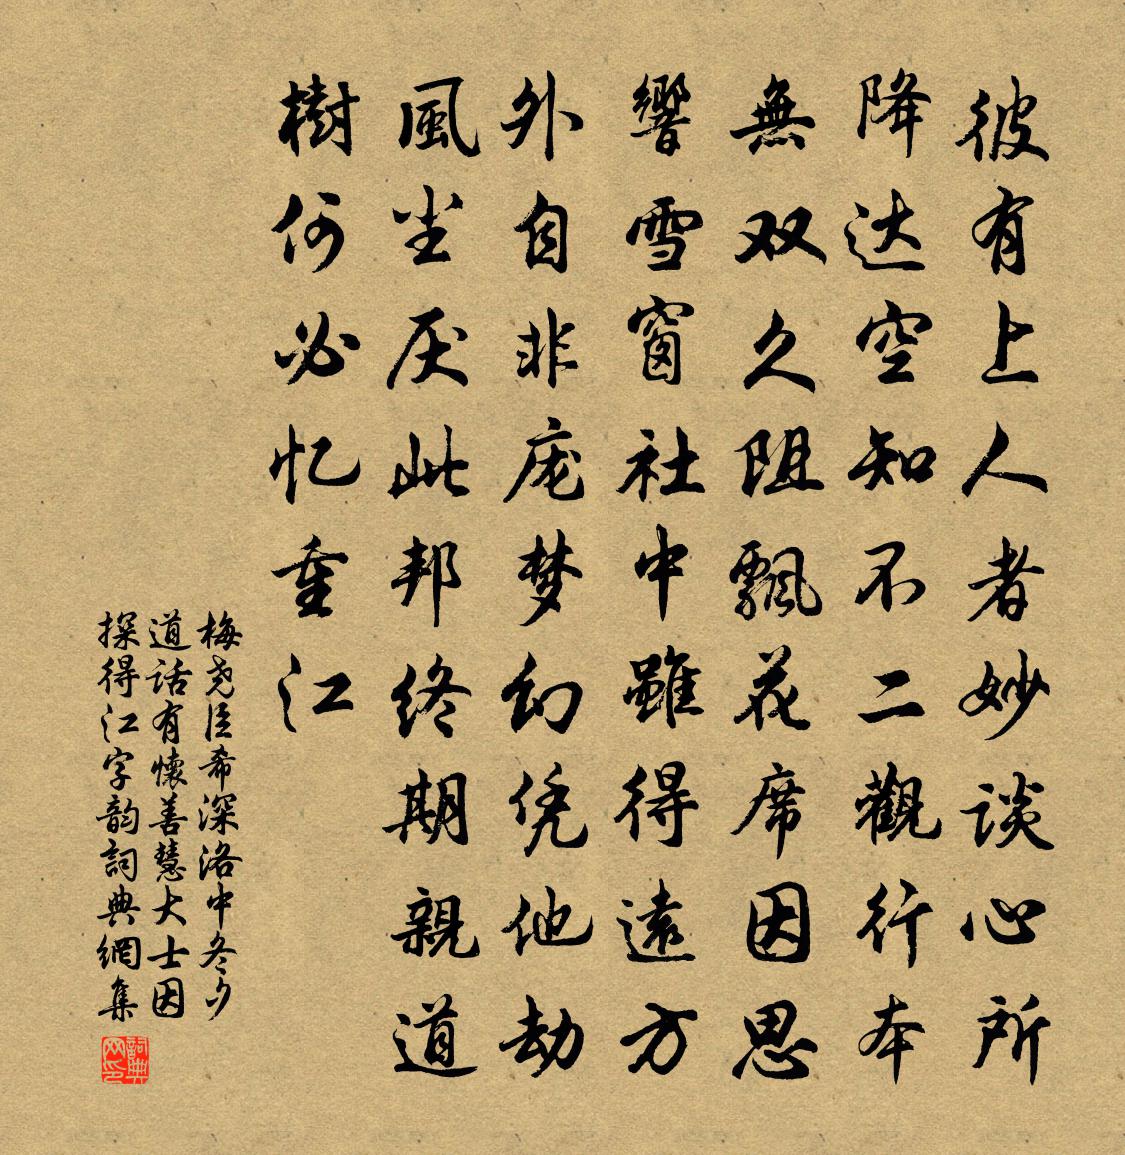 彼有上人者妙谈心所
降达空知不二觀行本
無双久阻飄花席因思
響雪窗社中雖得遠方
外自非庬梦幻凭他劫
風尘厌此邦終期親道
樹何必忆重江
梅尧臣希深洛中冬夕
道话有懷善慧大士因
探得江字韵詞典網集
詞典
网印